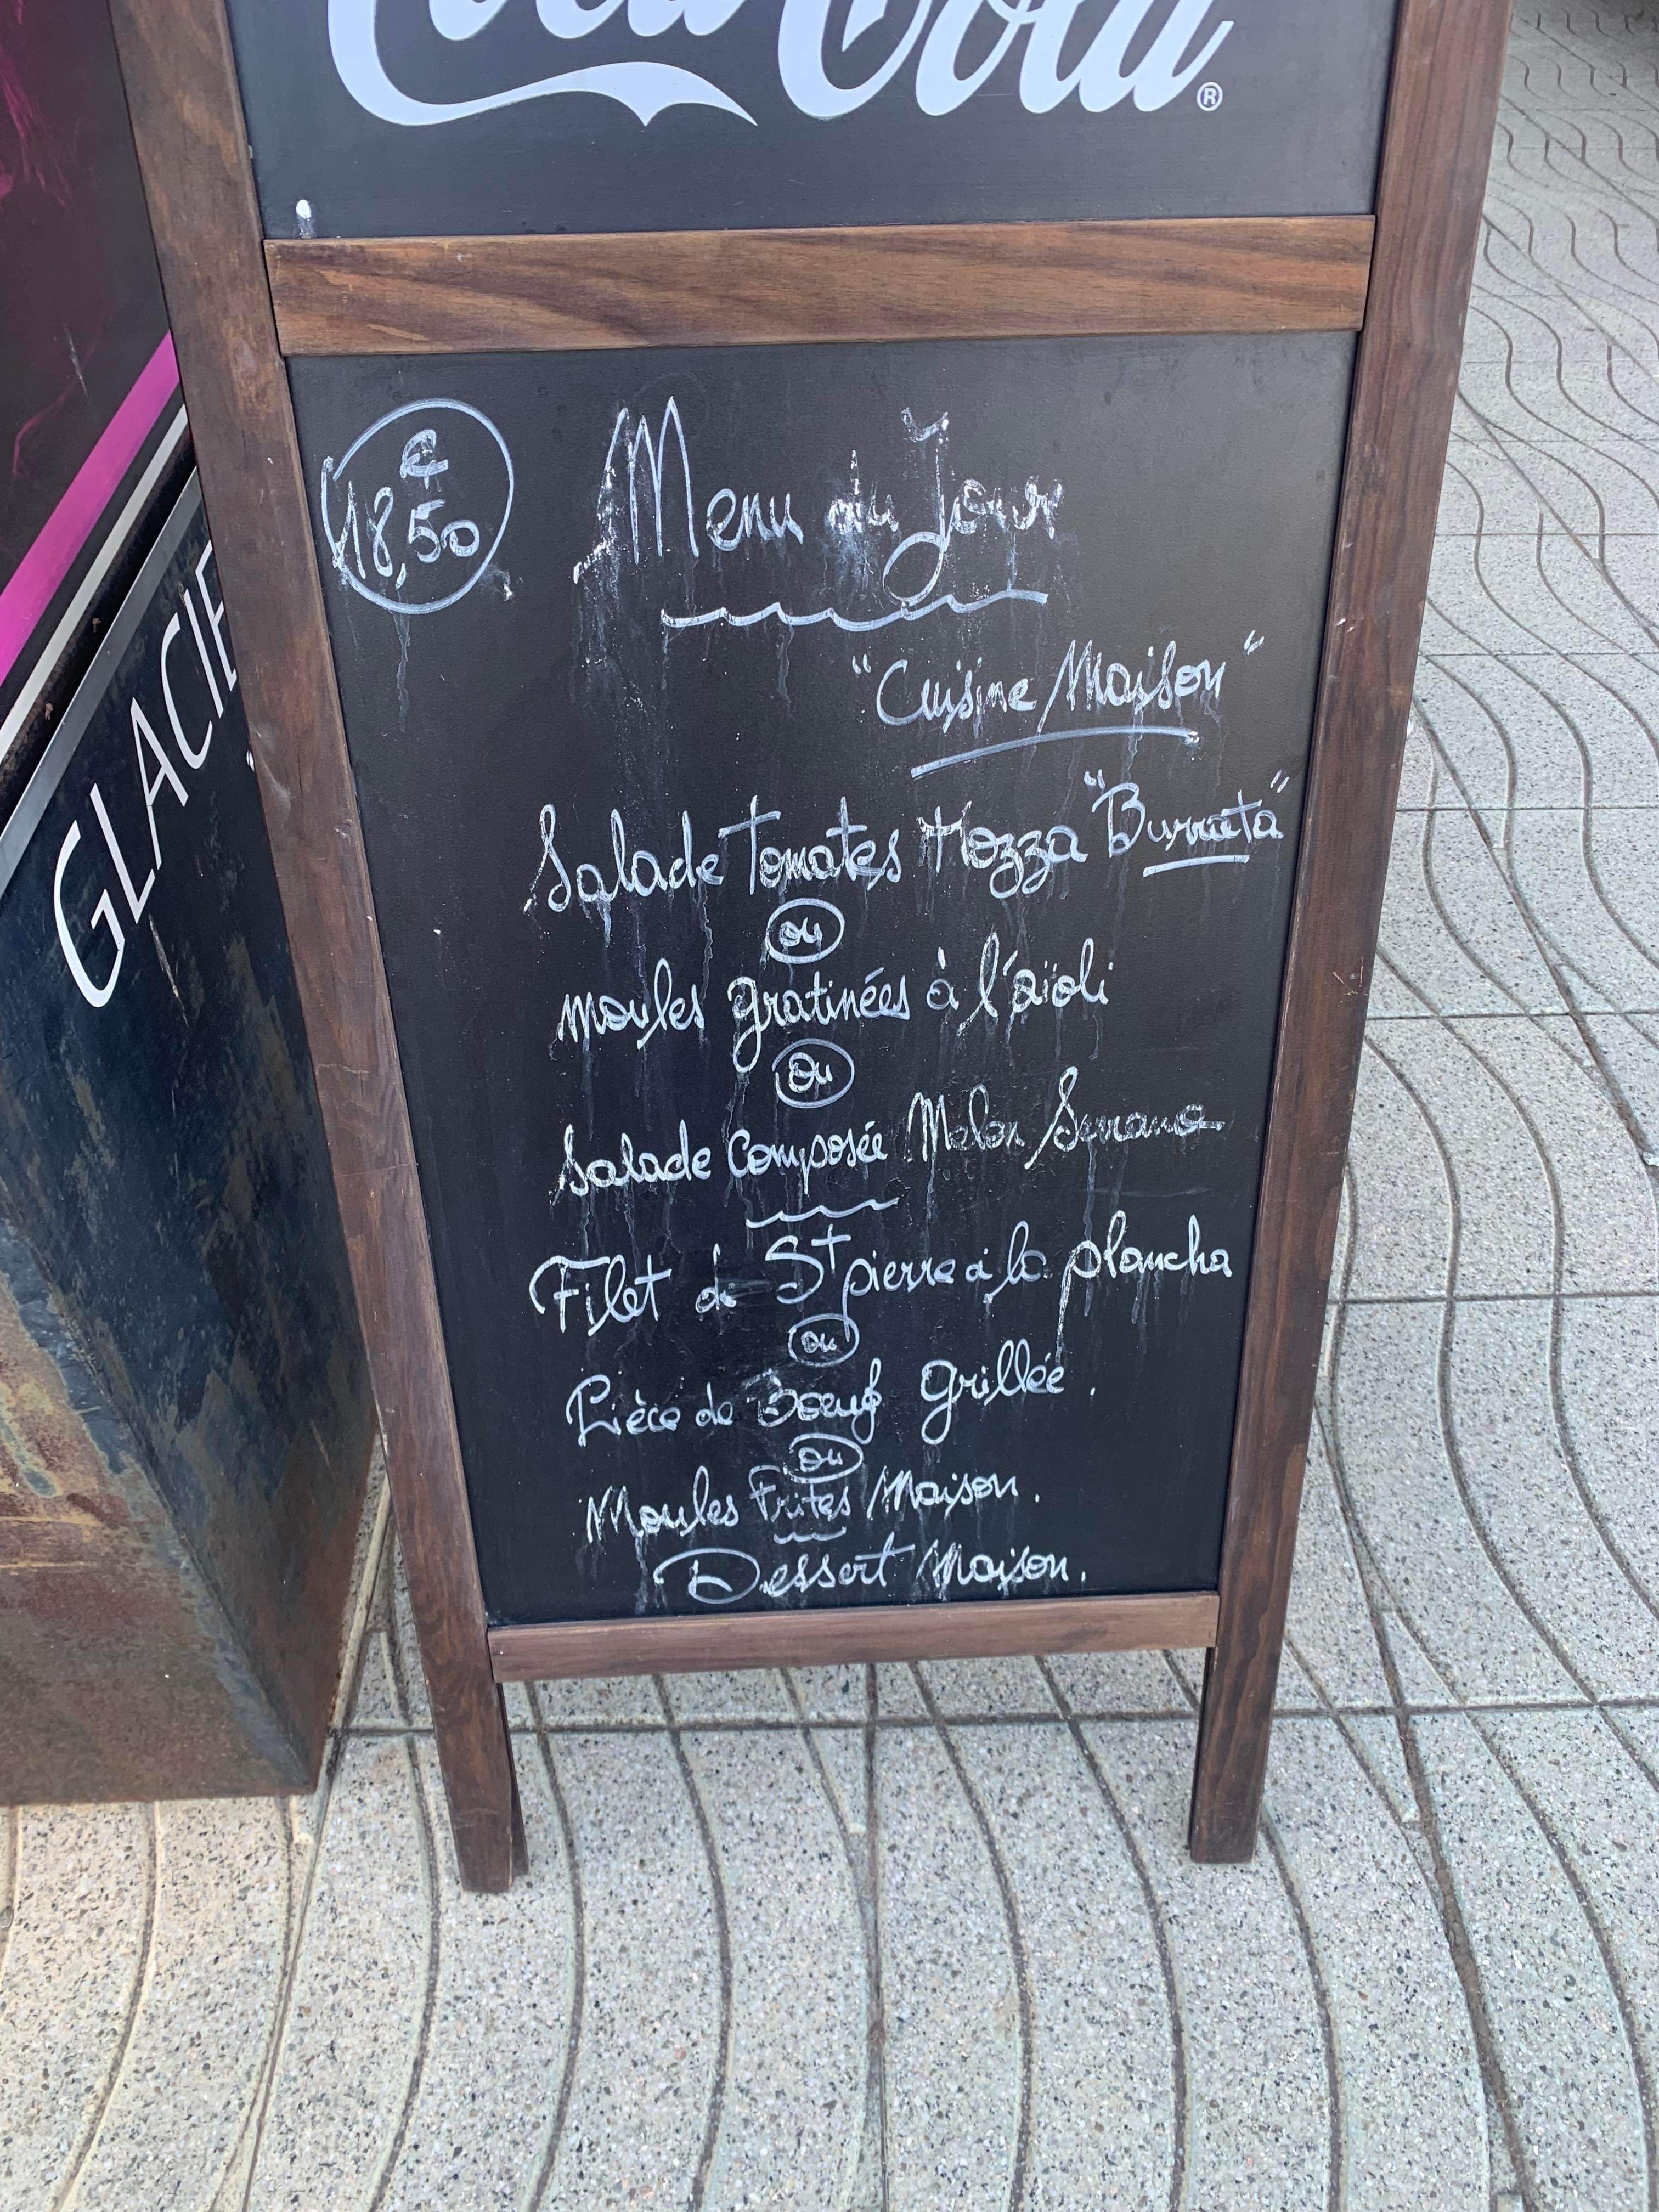 Coca-Cola®
GLACIE
€
18,50
Menu du Jour
"Cuisine Maison"
Salade Tomates Mozza "Burrata"
ou
moules gratinées à l'aïoli
ou
Salade Composée Melon Serrano
Filet de St pierre à la plancha
ou
Pièce de Boeuf Grillée.
ou
Moules Frites Maison.
Dessert Maison.